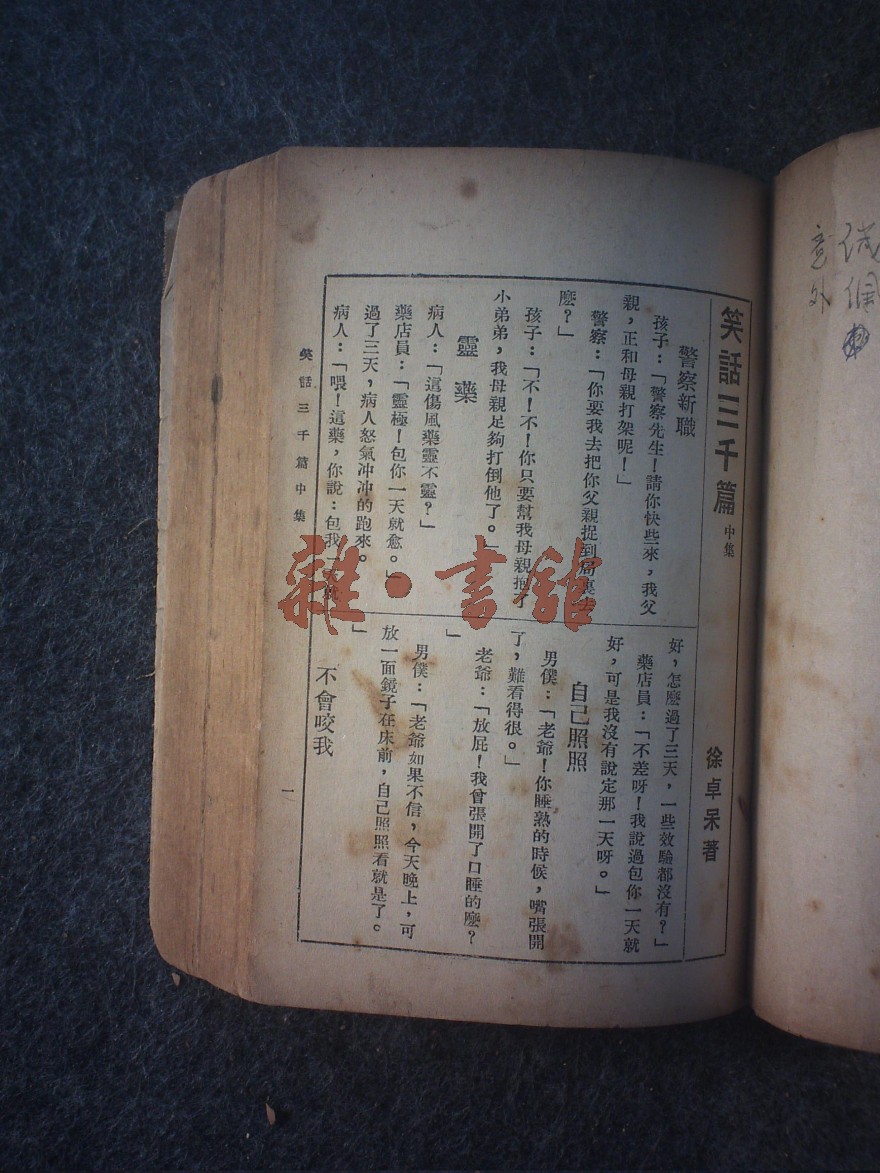 笑話三千篇 中集
徐卓呆著
警察新職
孩子：「警察先生！請你快些來，我父
親，正和母親打架呢！」
警察：「你要我去把你父親捉到局裏去
麽？」
孩子：「不！不！你只要幫我母親抱了
小弟弟，我母親足夠打倒他了。」
靈藥
病人：「這傷風藥靈不靈？」
藥店員：「靈極！包你一天就愈。」
過了三天，病人怒氣冲冲的跑來。
病人：「喂！這藥，你說：包我一天就
好，怎麽過了三天，一些效驗都沒有？」
藥店員：「不差呀！我說過包你一天就
好，可是我沒有說定那一天呀。」
自己照照
男僕：「老爺！你睡熟的時候，嘴張開
了，難看得很。」
老爺：「放屁！我曾張開了口睡的麽？
」
男僕：「老爺如果不信，今天晚上，可
放一面鏡子在床前，自己照照看就是了。
」
不會咬我
笑話三千篇中集
一
意外
雜·書館